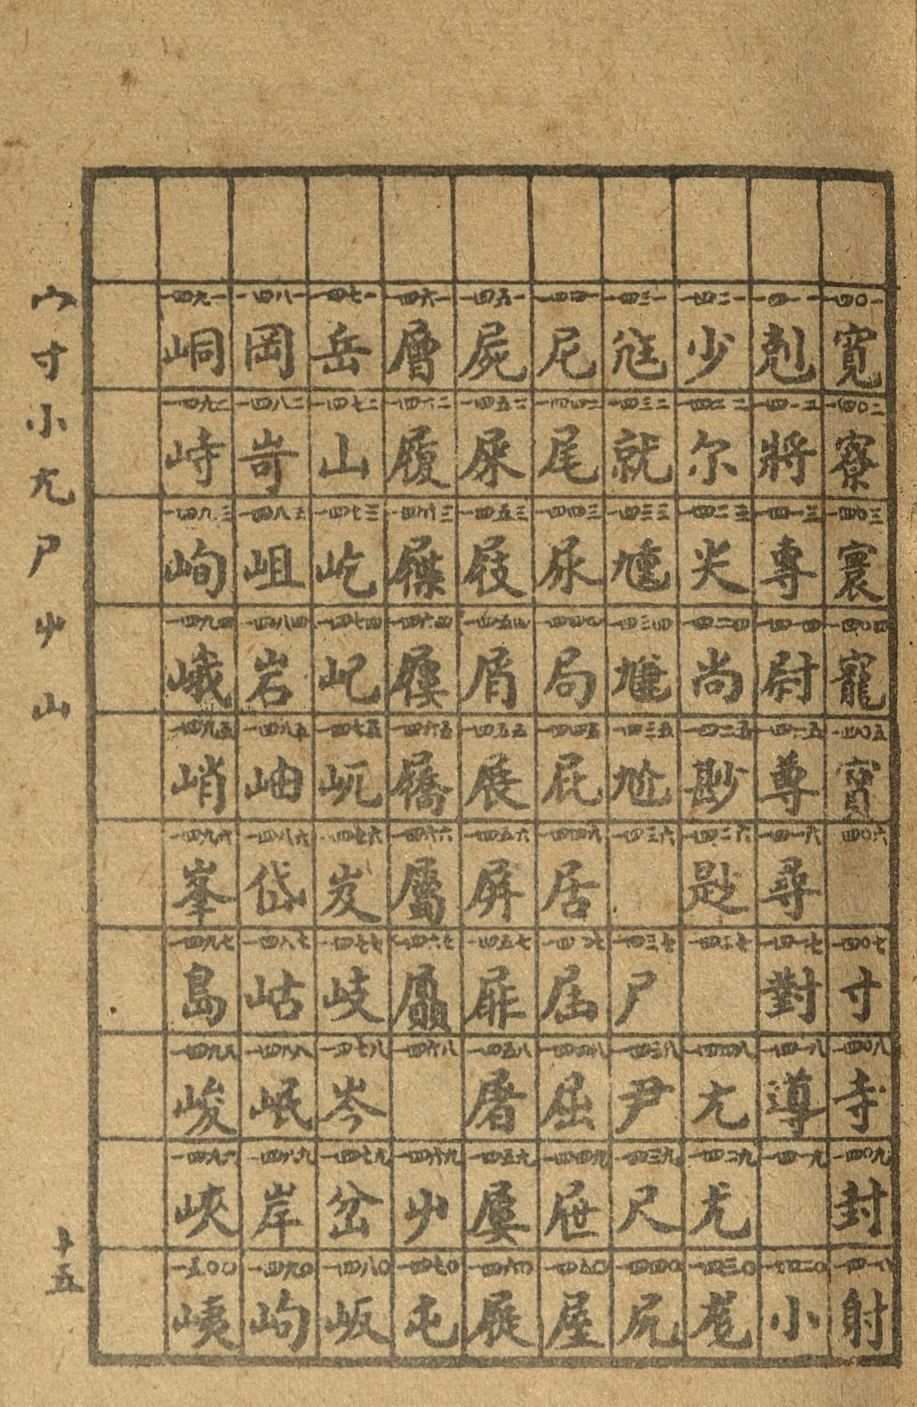 一四〇一 寬 一四〇二 寮 一四〇三 寰 一四〇四 寵 一四〇五 寶 一四〇六 一四〇七 寸 一四〇八 寺 一四〇九 封 一四一〇 射
一四一一 剋 一四一二 將 一四一三 專 一四一四 尉 一四一五 尊 一四一六 尋 一四一七 對 一四一八 導 一四一九 一四二〇 小
一四二一 少 一四二二 尔 一四二三 尖 一四二四 尚 一四二五 尠 一四二六 尟 一四二七 一四二八 尢 一四二九 尤 一四三〇 尨
一四三一 尪 一四三二 就 一四三三 尰 一四三四 尲 一四三五 尬 一四三六 一四三七 尸 一四三八 尹 一四三九 尺 一四四〇 尻
一四四一 尼 一四四二 尾 一四四三 尿 一四四四 局 一四四五 屁 一四四六 居 一四四七 屆 一四四八 屈 一四四九 屉 一四五〇 屋
一四五一 屍 一四五二 屎 一四五三 屐 一四五四 屑 一四五五 展 一四五六 屏 一四五七 屝 一四五八 屠 一四五九 屢 一四六〇 屣
一四六一 層 一四六二 履 一四六三 屧 一四六四 屨 一四六五 屩 一四六六 屬 一四六七 屭 一四六八 一四六九 屮 一四七〇 屯
一四七一 岳 一四七二 山 一四七三 屹 一四七四 屺 一四七五 岏 一四七六 岌 一四七七 岐 一四七八 岑 一四七九 岔 一四八〇 岅
一四八一 岡 一四八二 岢 一四八三 岨 一四八四 岩 一四八五 岫 一四八六 岱 一四八七 岵 一四八八 岷 一四八九 岸 一四九〇 岣
一四九一 峒 一四九二 峙 一四九三 峋 一四九四 峨 一四九五 峭 一四九六 峯 一四九七 島 一四九八 峻 一四九九 峽 一五〇〇 峓
宀寸小尢尸屮山
十五